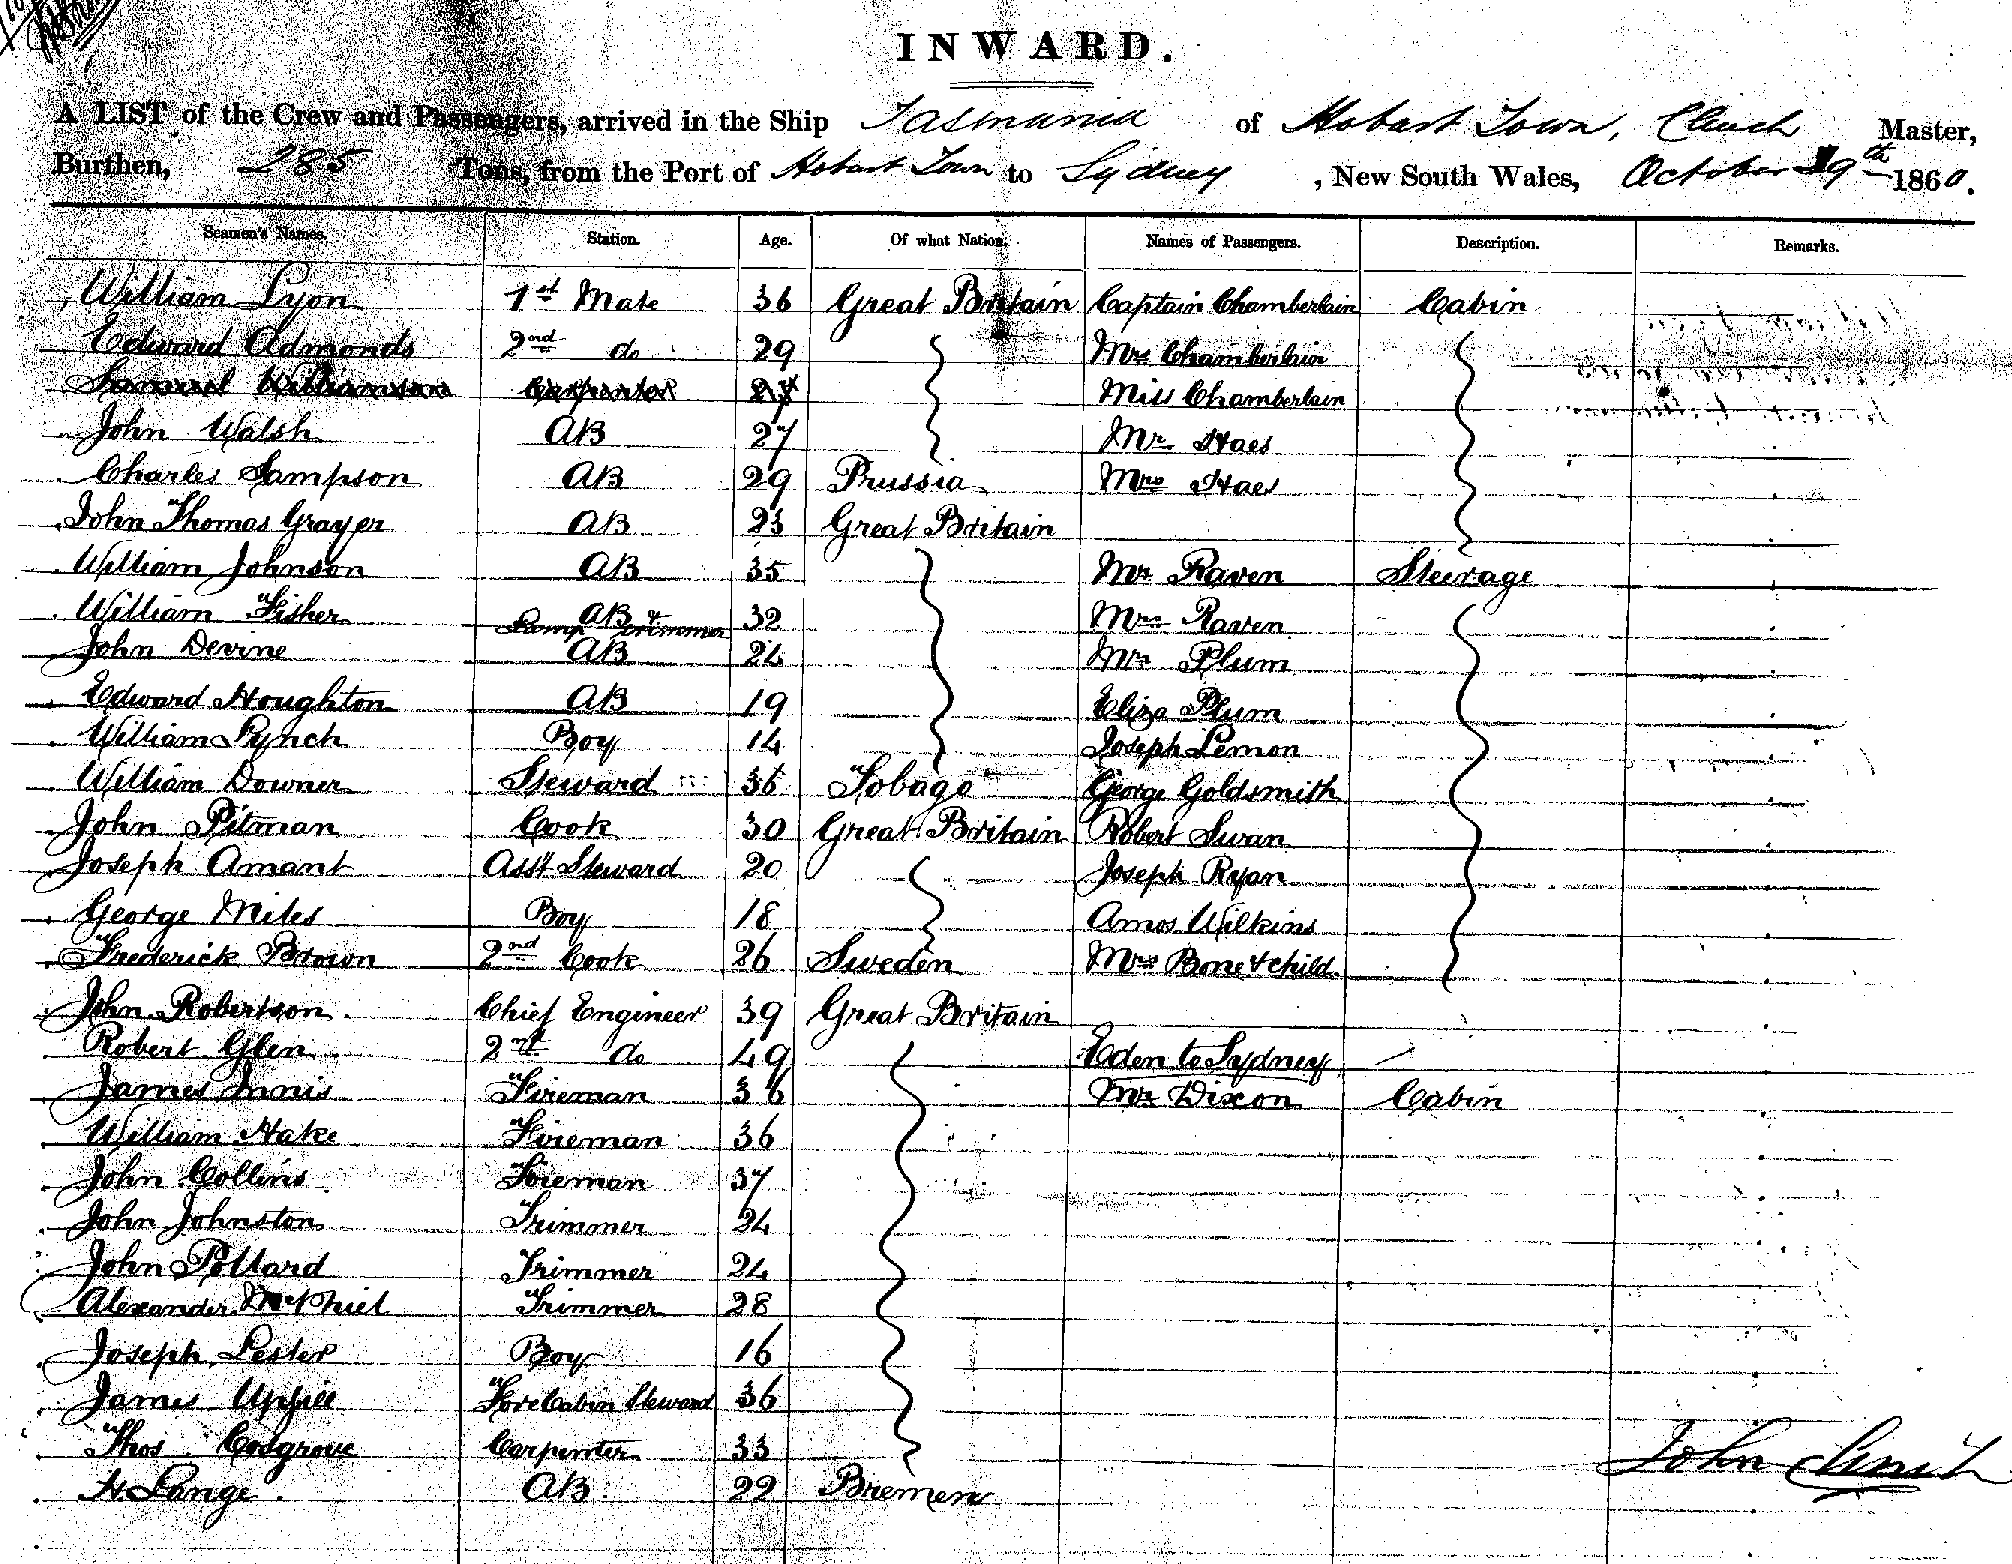 INWARD.
A LIST of the Crew and Passengers, arrived in the Ship Tasmania of Hobart Town, Clinch Master,
Burthen, 285 Tons, from the Port of Hobart Town to Sydney, New South Wales, October 19th 1860.
Seamen's Names. Station. Age. Of what Nation. Names of Passengers. Description. Remarks.
William Lyon 1st Mate 36 Great Britain Captain Chamberlain Cabin
Edward Admonds 2nd do 29 Mrs Chamberlain
Samuel Williamson Carpenter Miss Chamberlain
John Walsh AB 27 Mr Haes
Charles Sampson AB 29 Prussia Mrs Haes
John Thomas Grayer AB 23 Great Britain
William Johnson AB 35 Mr Raven Steerage
William Fisher AB & Lamp trimmer 32 Mrs Raven
John Devine AB 24 Mr Plum
Edward Houghton AB 19 Eliza Plum
William Lynch Boy 14 Joseph Lemon
William Downer Steward 36 Tobago George Goldsmith
John Pitman Cook 30 Great Britain Robert Swan
Joseph Amant Asst Steward 20 Joseph Ryan
George Miles Boy 18 Amos Wilkins
Frederick Brown 2nd Cook 26 Sweden Mrs Bone & child
John Robertson Chief Engineer 39 Great Britain
Robert Glen 2nd do 49 Eden to Sydney
James Innis Fireman 36 Mr Dixon Cabin
William Hake Fireman 36
John Collins Fireman 37
John Johnston Trimmer 24
John Pollard Trimmer 24
Alexander McPhiel Trimmer 28
Joseph Lester Boy 16
James Upfill Fore Cabin Steward 36
Thos Cosgrove Carpenter 33
H. Lange AB 22 Bremen
John Clinch